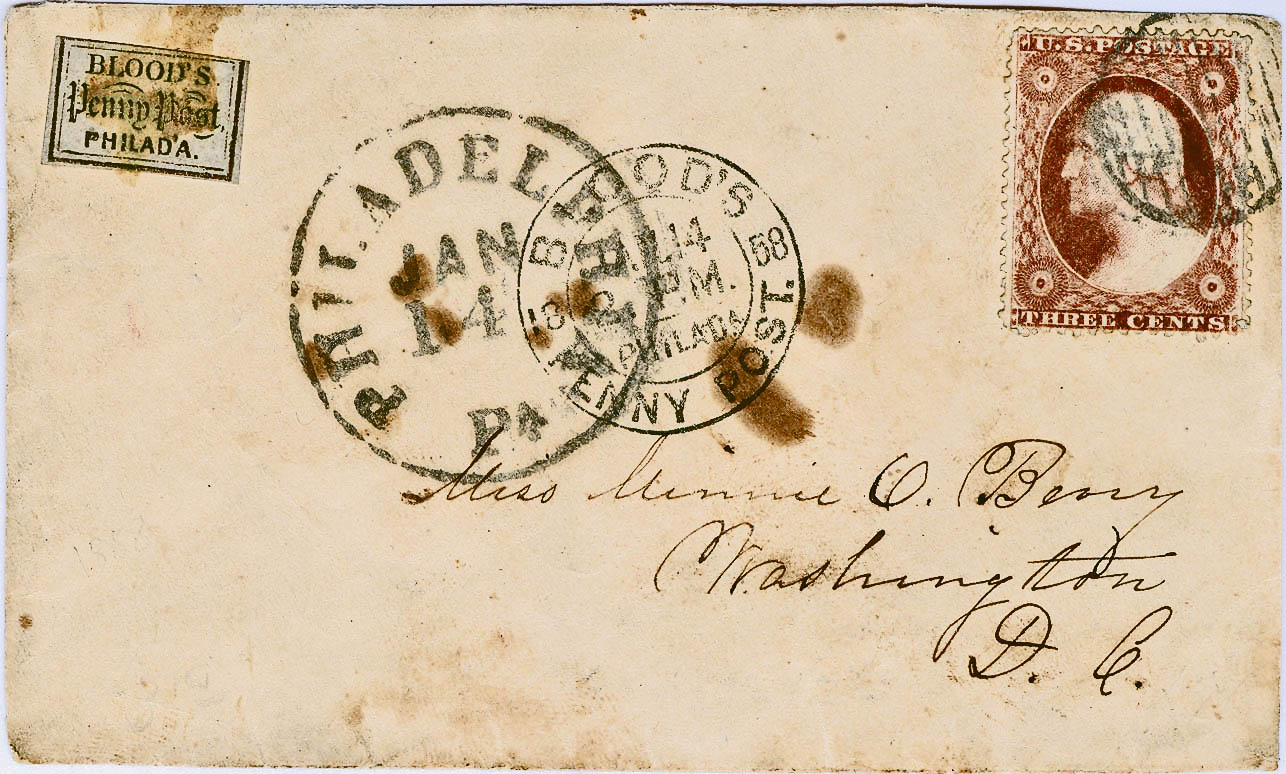 BLOOD'S
Penny Post,
PHILADA.
U.S. POSTAGE
THREE CENTS
PHILADELPHIA
JAN
14
Pa
BLOOD'S
PENNY POST.
18 58
14
P.M.
PHILADA
Miss Minnie C. Berry
Washington
D. C.